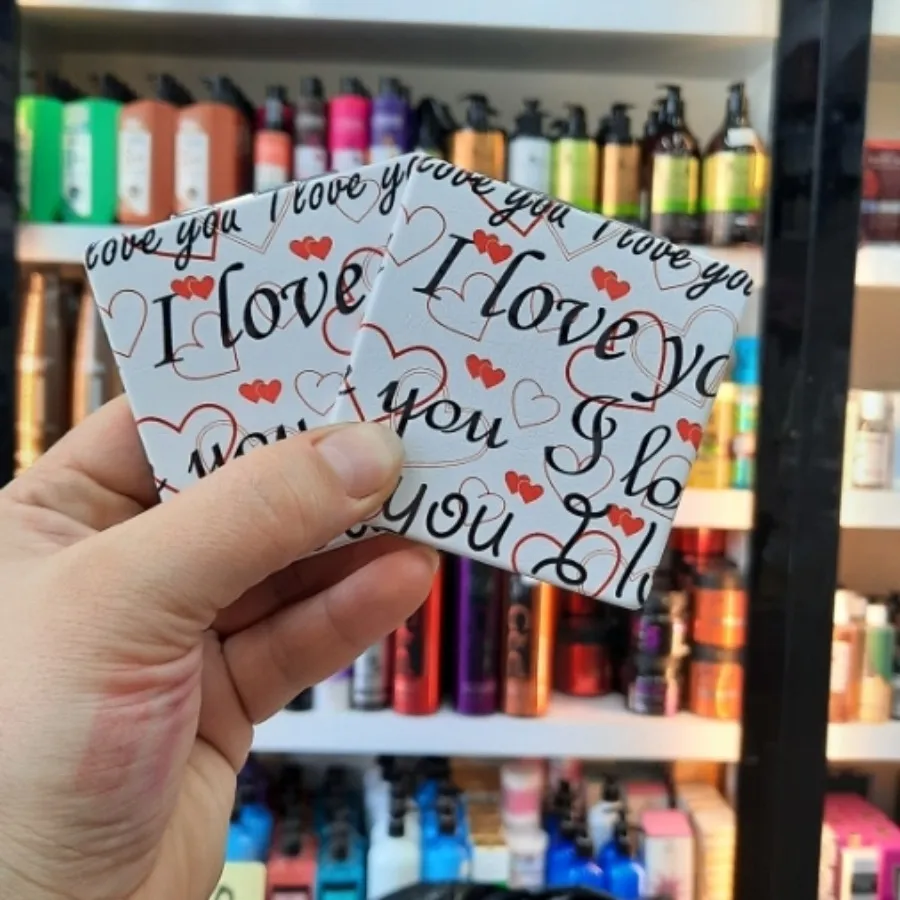 Love you I love y
I love
you
love you I love you
I love yo
you I lo
you I l